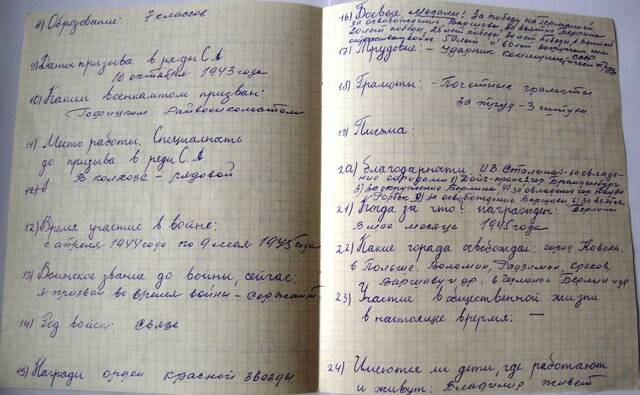 8) Образование: 7 классов
9) Дата призыва в ряды С.А.
10 октября 1943 года
10) Каким военкоматом призван:
Райвоенкоматом
11) Место работы, Специалность
до призыва в ряды С.А.
В колхозе - рядовой
12) Время участие в войне:
с апреля 1944 года по 9 мая 1945 года
13) Воинское звание до войны, сейчас:
я призван во время войны - сержант
14) Род войск: связь
15) Награди орден красной звезды
16) Боевые медали: За победу над Германией
за освобождение Варшавы, за взятие Берлина
20 лет победы, 25 лет победы 30 лет победы
50 лет и 60 лет вооружен сил
СССР
17) Трудовые: - Ударник коммунистического труда
18) Грамоты: - Почетние грамоты
за труд - 3 штуки
19) Письма:
20) Благодарности И.В. Сталина: - за овладе-
ние городами 1)
3) за окружение Берлина, 4) за овладение гор
5) за освобождение Варшавы, 6) за взятие
Берлина
21) Когда за что награжден:
В мае месяце 1945 года
22) Какие города освобождал: город Ковель,
в Польше, Воломин, Радзимин,
Варшаву и др, в Германии Берлин и др
23) Участие в общественной жизни
в настоящее время: —
24) Имеются ли дети, где работают
и живут: Владимир живет